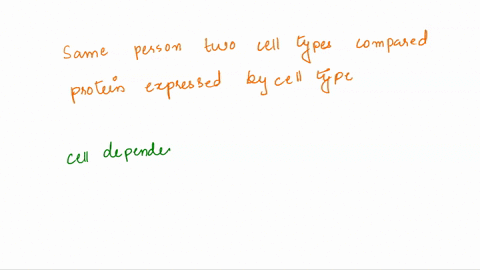 Same person two cell types compared
proteins expressed by cell type
cell depende